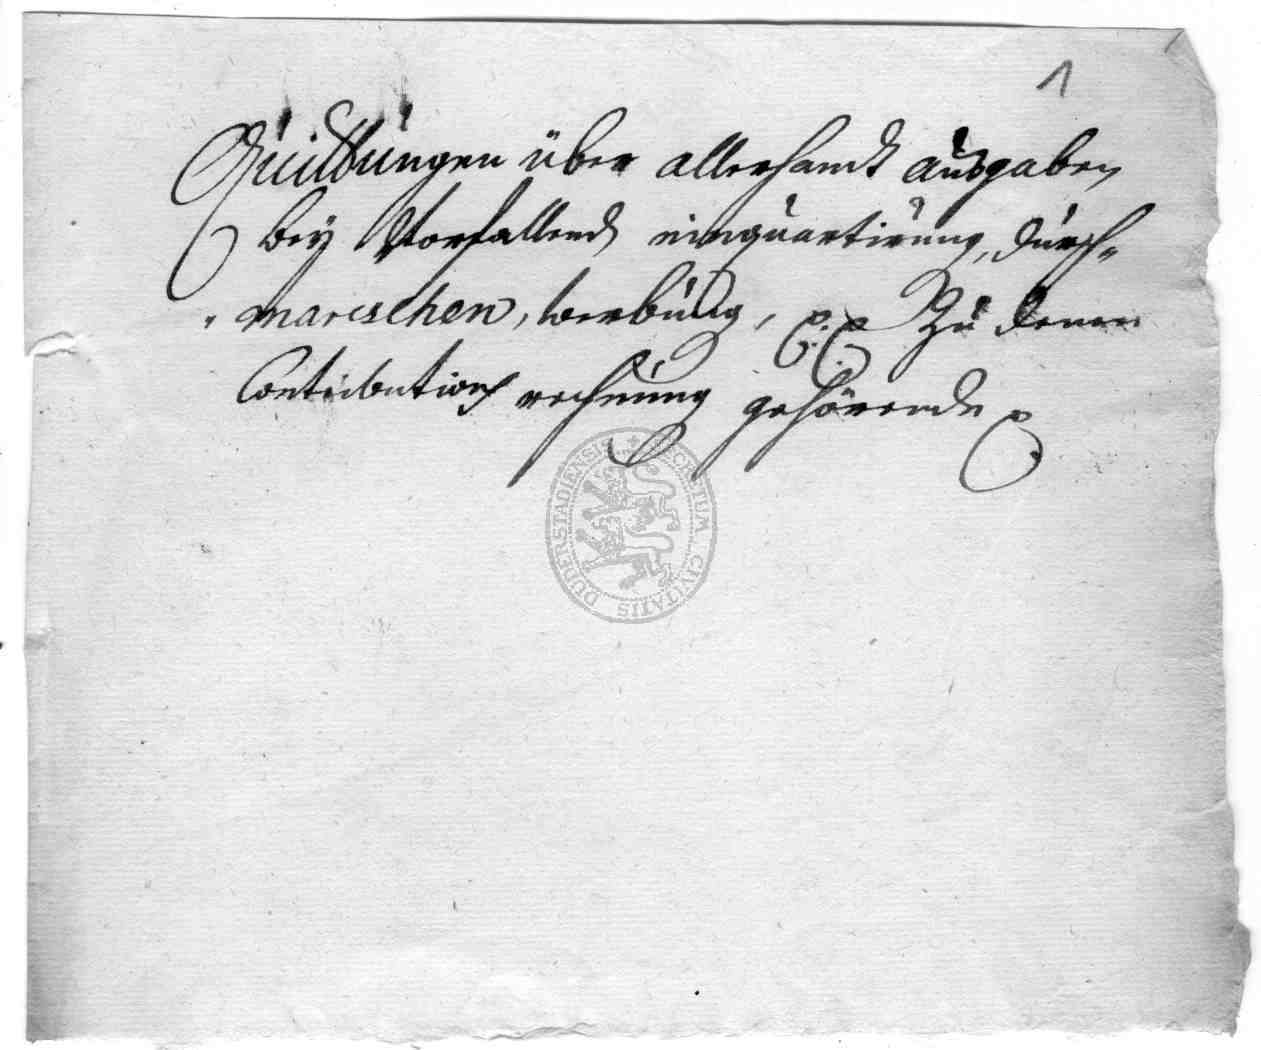 1
Quittungen über allerhandt ausgaben
bey Vorfallend einquartirung, durch=
=marischen, werbung, p. p. Zu denen
Contributions rechnung gehörende p.
SECRETUM CIVITATIS DUDERSTADIENSIS